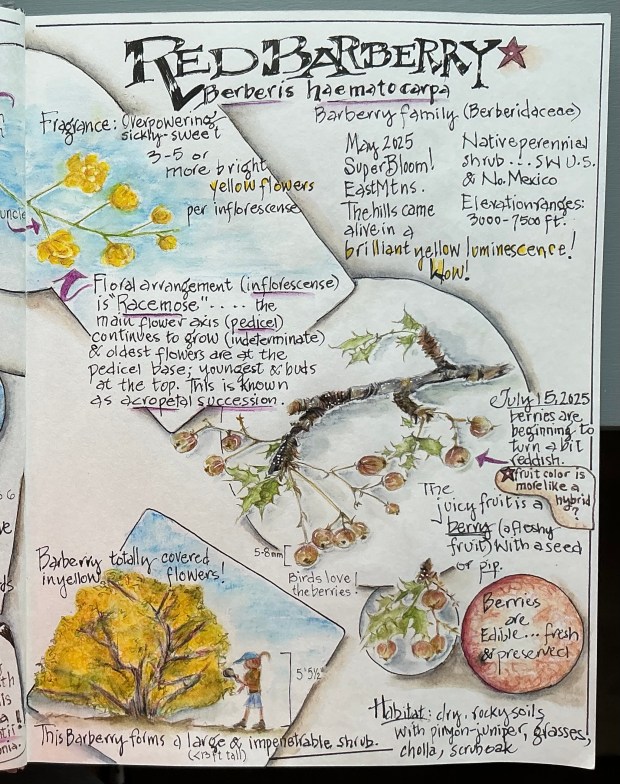 RED BARBERRY
Berberis haematocarpa
Barberry family (Berberidaceae)
Fragrance: Overpowering
sickly-sweet
3-5 or
more bright
yellow flowers
per inflorescense
May 2025
SuperBloom!
East Mtns.
The hills came
alive in a
brilliant yellow luminescence!
Wow!
Native perennial
shrub... SW U.S.
& No. Mexico
Elevation ranges:
3000-7500 ft.
Floral arrangement (inflorescense)
is "Racemose".... the
main flower axis (pedicel)
continues to grow (indeterminate)
& oldest flowers are at the
pedicel base; youngest & buds
at the top. This is known
as acropetal succession.
July 15, 2025
berries are
beginning to
turn a bit
reddish.
fruit color is
more like a
hybrid
?
The
juicy fruit is a
berry (a fleshy
fruit) with a seed
or pip.
5-8mm
Birds love
the berries!
Barberry totally covered
in yellow flowers!
5'5½"
Berries
are
Edible... fresh
& preserved
This Barberry forms a large & impenetrable shrub.
(<13 ft tall)
Habitat: dry, rocky soils
with pinyon-juniper, grasses,
cholla, scrub oak